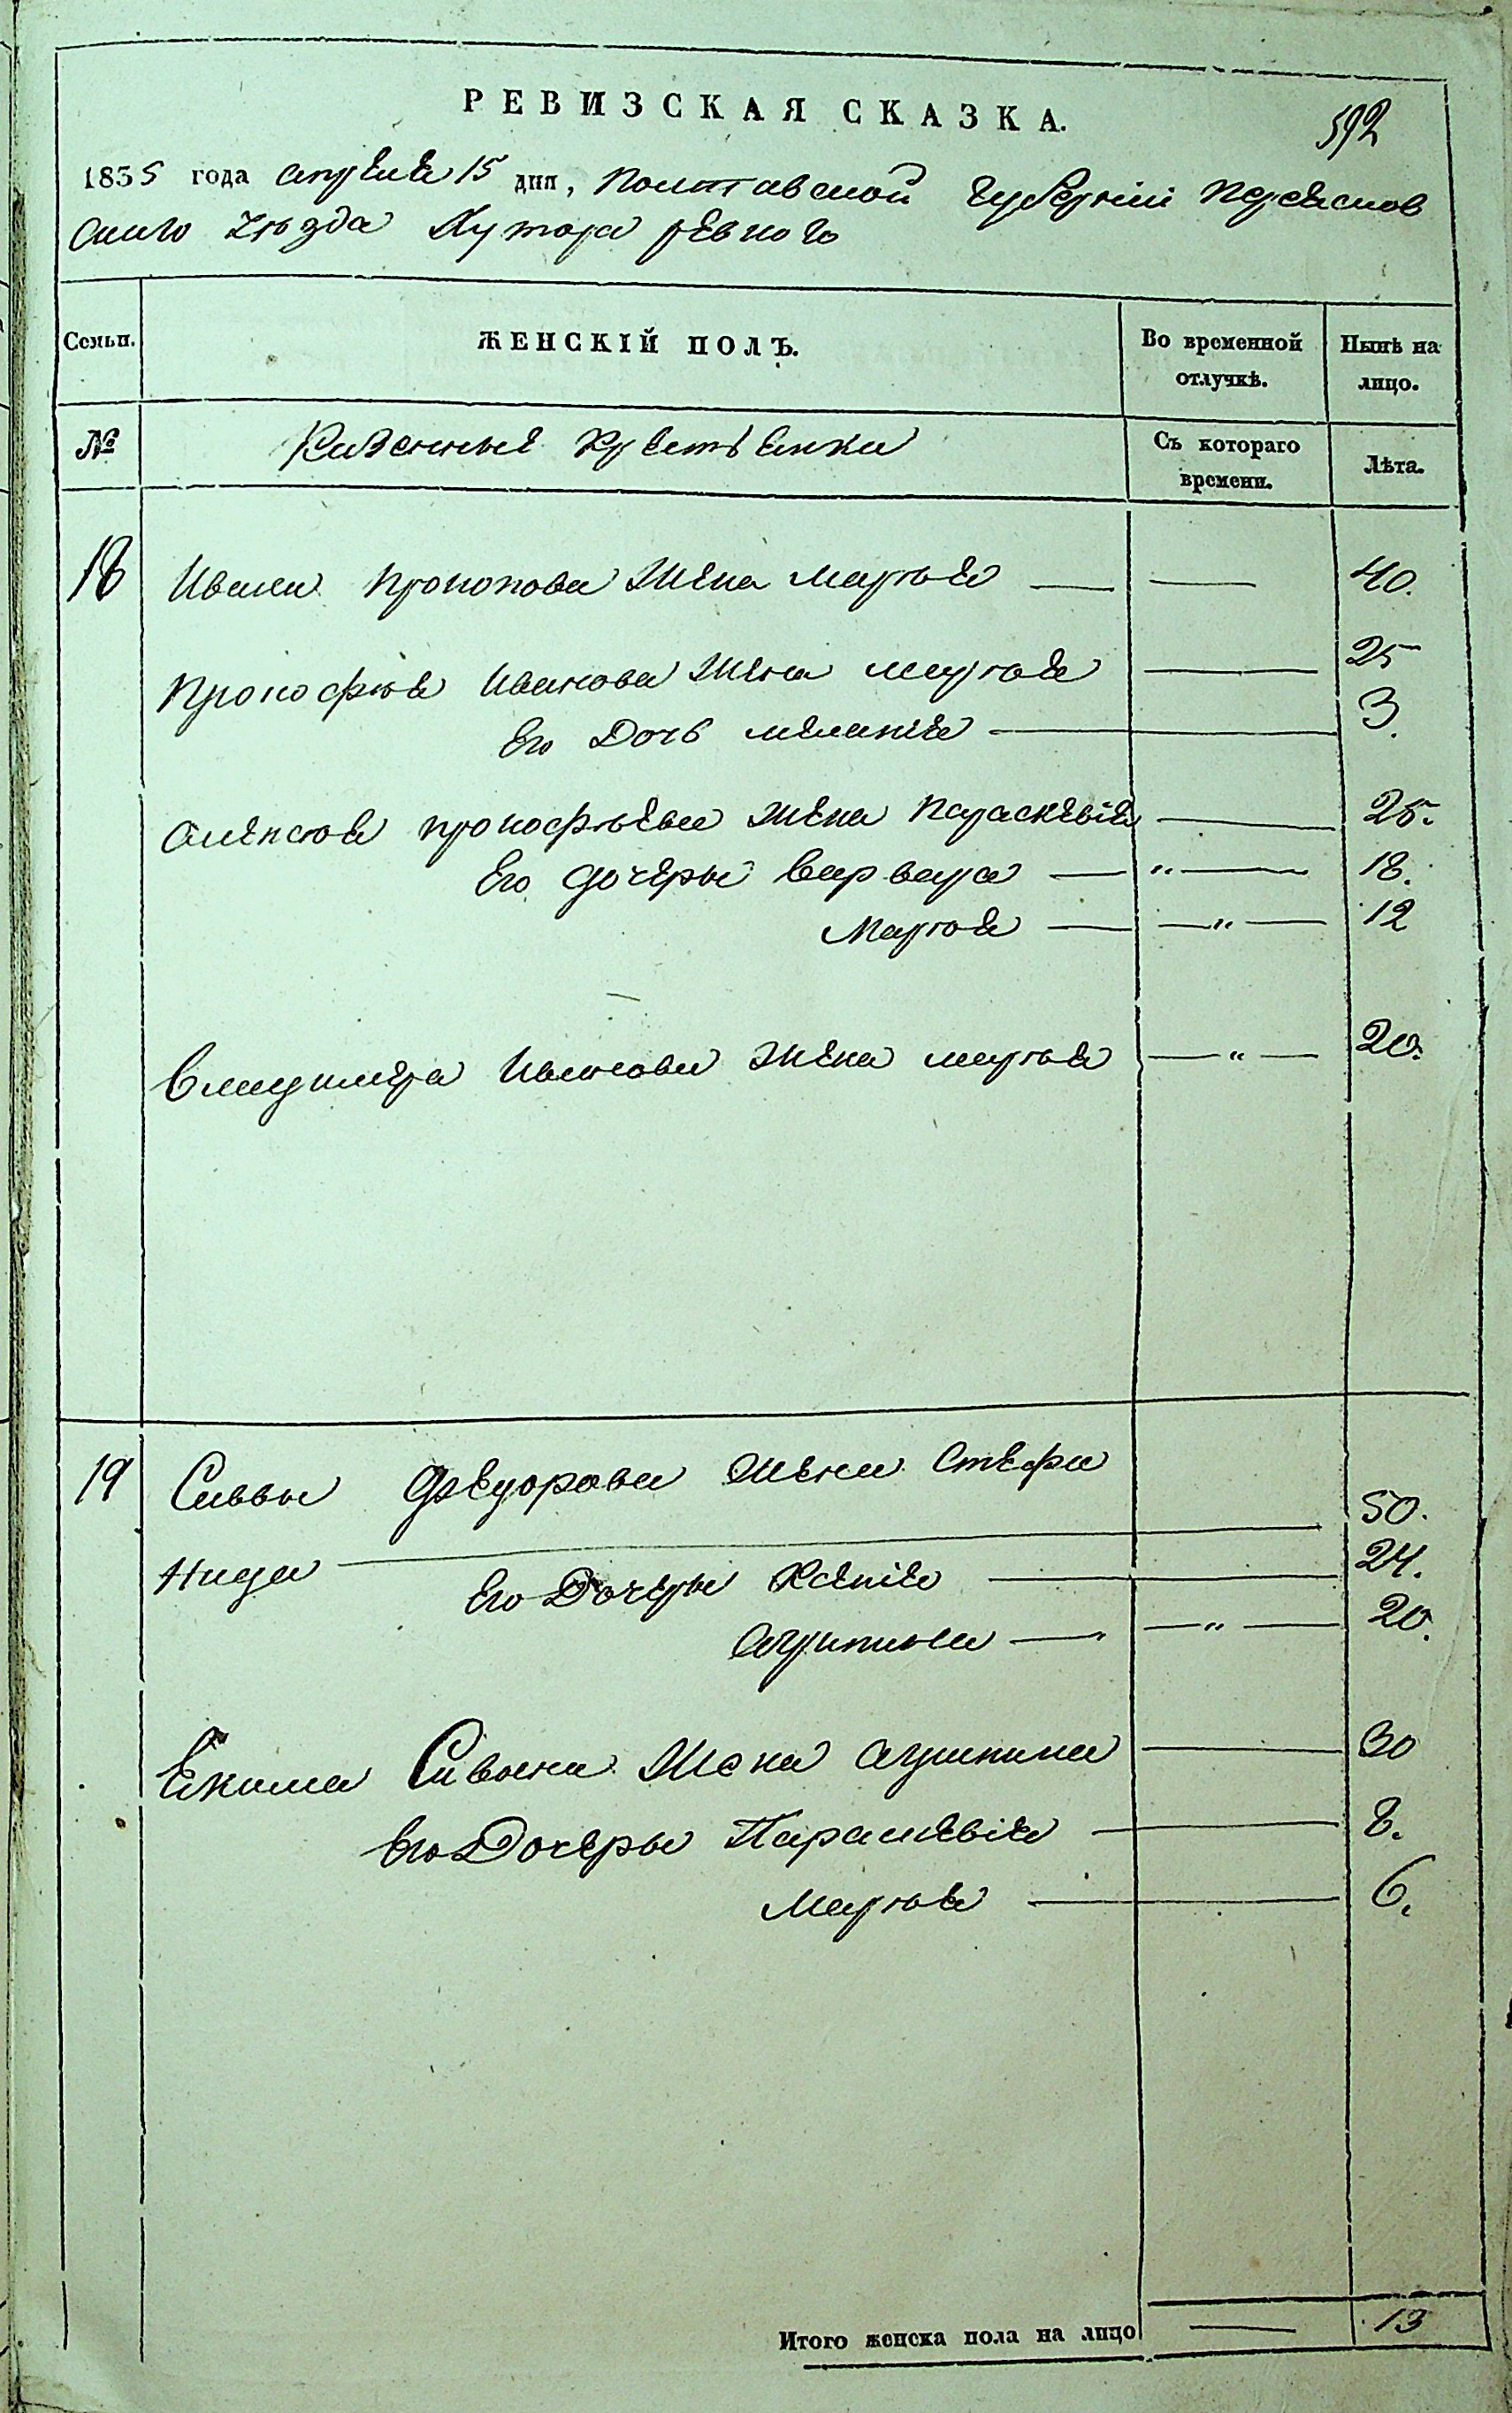 РЕВИЗСКАЯ СКАЗКА.
592
1835 года апреля 15 дня, Полтавской Губернии Переяслов
скаго Уезда Хутора Ревного
Семьи. ЖЕНСКІЙ ПОЛЪ. Во временной отлучкѣ. Нынѣ на лицо.
№ Казенные Крестьянки Съ котораго времени. Лѣта.
18 Ивана Прокопова Жена Марья — — 40.
Прокофия Иванова Жена Марья — 25
Его Дочь Меланія — 3.
Алексея Прокофьева Жена Параскевія — 25.
Его дочеры Варвара — " — 18.
Марья — — " — 12
Владимера Иванова Жена Марья — " — 20.
19 Саввы Федорова Жена Стефа
нида — 50.
Его Дочеры Ксенія — 24.
Агрипина — — " — 20.
Екима Савина Жена Агрипина — 30
Его Дочеры Параскевія — 8.
Марья — 6.
Итого женска пола на лицо — 13